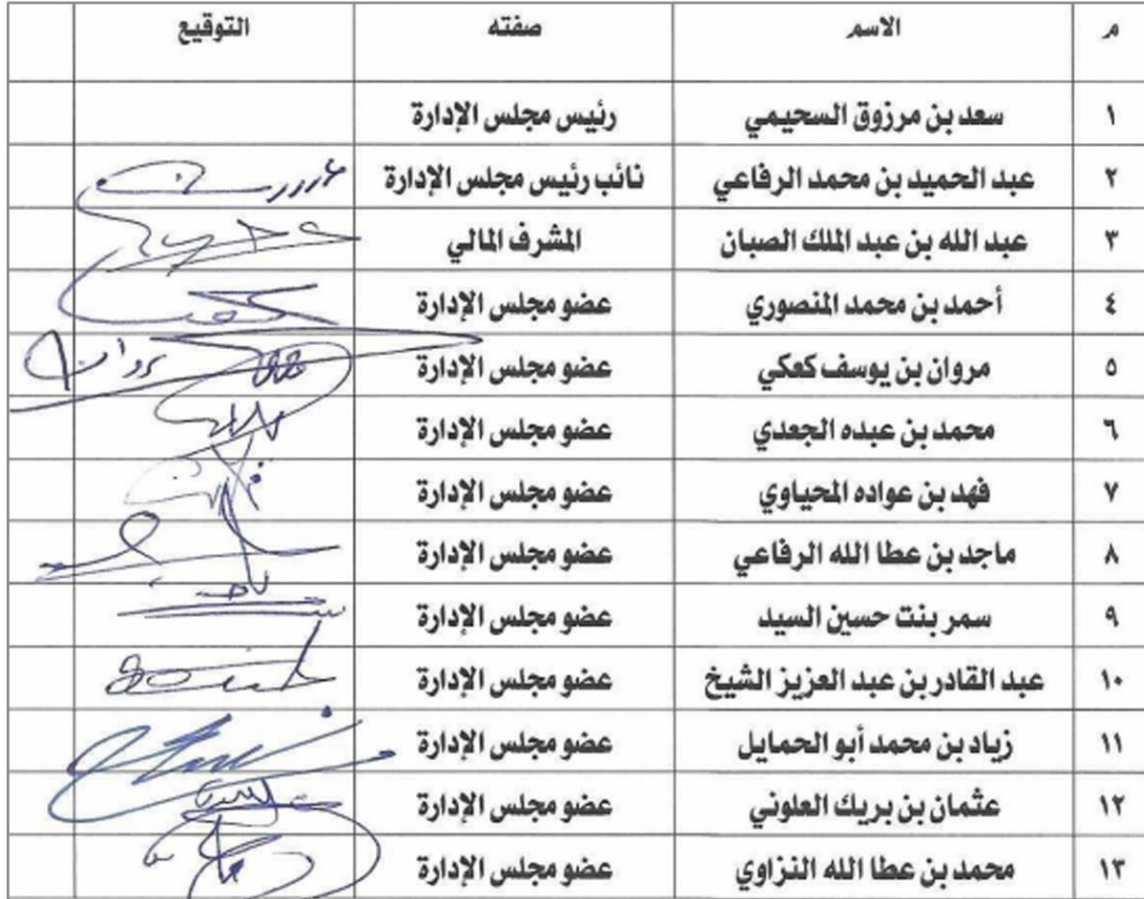 م الاسم صفته التوقيع
١ سعد بن مرزوق السحيمي رئيس مجلس الإدارة
٢ عبد الحميد بن محمد الرفاعي نائب رئيس مجلس الإدارة
٣ عبد الله بن عبد الملك الصبان المشرف المالي
٤ أحمد بن محمد المنصوري عضو مجلس الإدارة
٥ مروان بن يوسف كعكي عضو مجلس الإدارة مروان
٦ محمد بن عبده الجعدي عضو مجلس الإدارة
٧ فهد بن عواده المحياوي عضو مجلس الإدارة
٨ ماجد بن عطا الله الرفاعي عضو مجلس الإدارة
٩ سمر بنت حسين السيد عضو مجلس الإدارة
١٠ عبد القادر بن عبد العزيز الشيخ عضو مجلس الإدارة
١١ زياد بن محمد أبو الحمايل عضو مجلس الإدارة
١٢ عثمان بن بريك العلوني عضو مجلس الإدارة
١٣ محمد بن عطا الله النزاوي عضو مجلس الإدارة